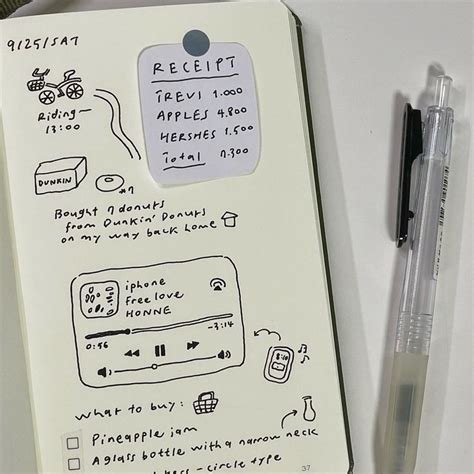 9/25/SAT
Riding—
13:00
RECEIPT
TREVI 1.000
APPLES 4.800
HERSHES 1.500
Total 7.300
DUNKIN
*7
Bought 7 donuts
from Dunkin' Donuts
on my way back home
iphone
free love
HONNE
0:56
-3:14
what to buy:
Pineapple jam
A glass bottle with a narrow neck
- circle type
37